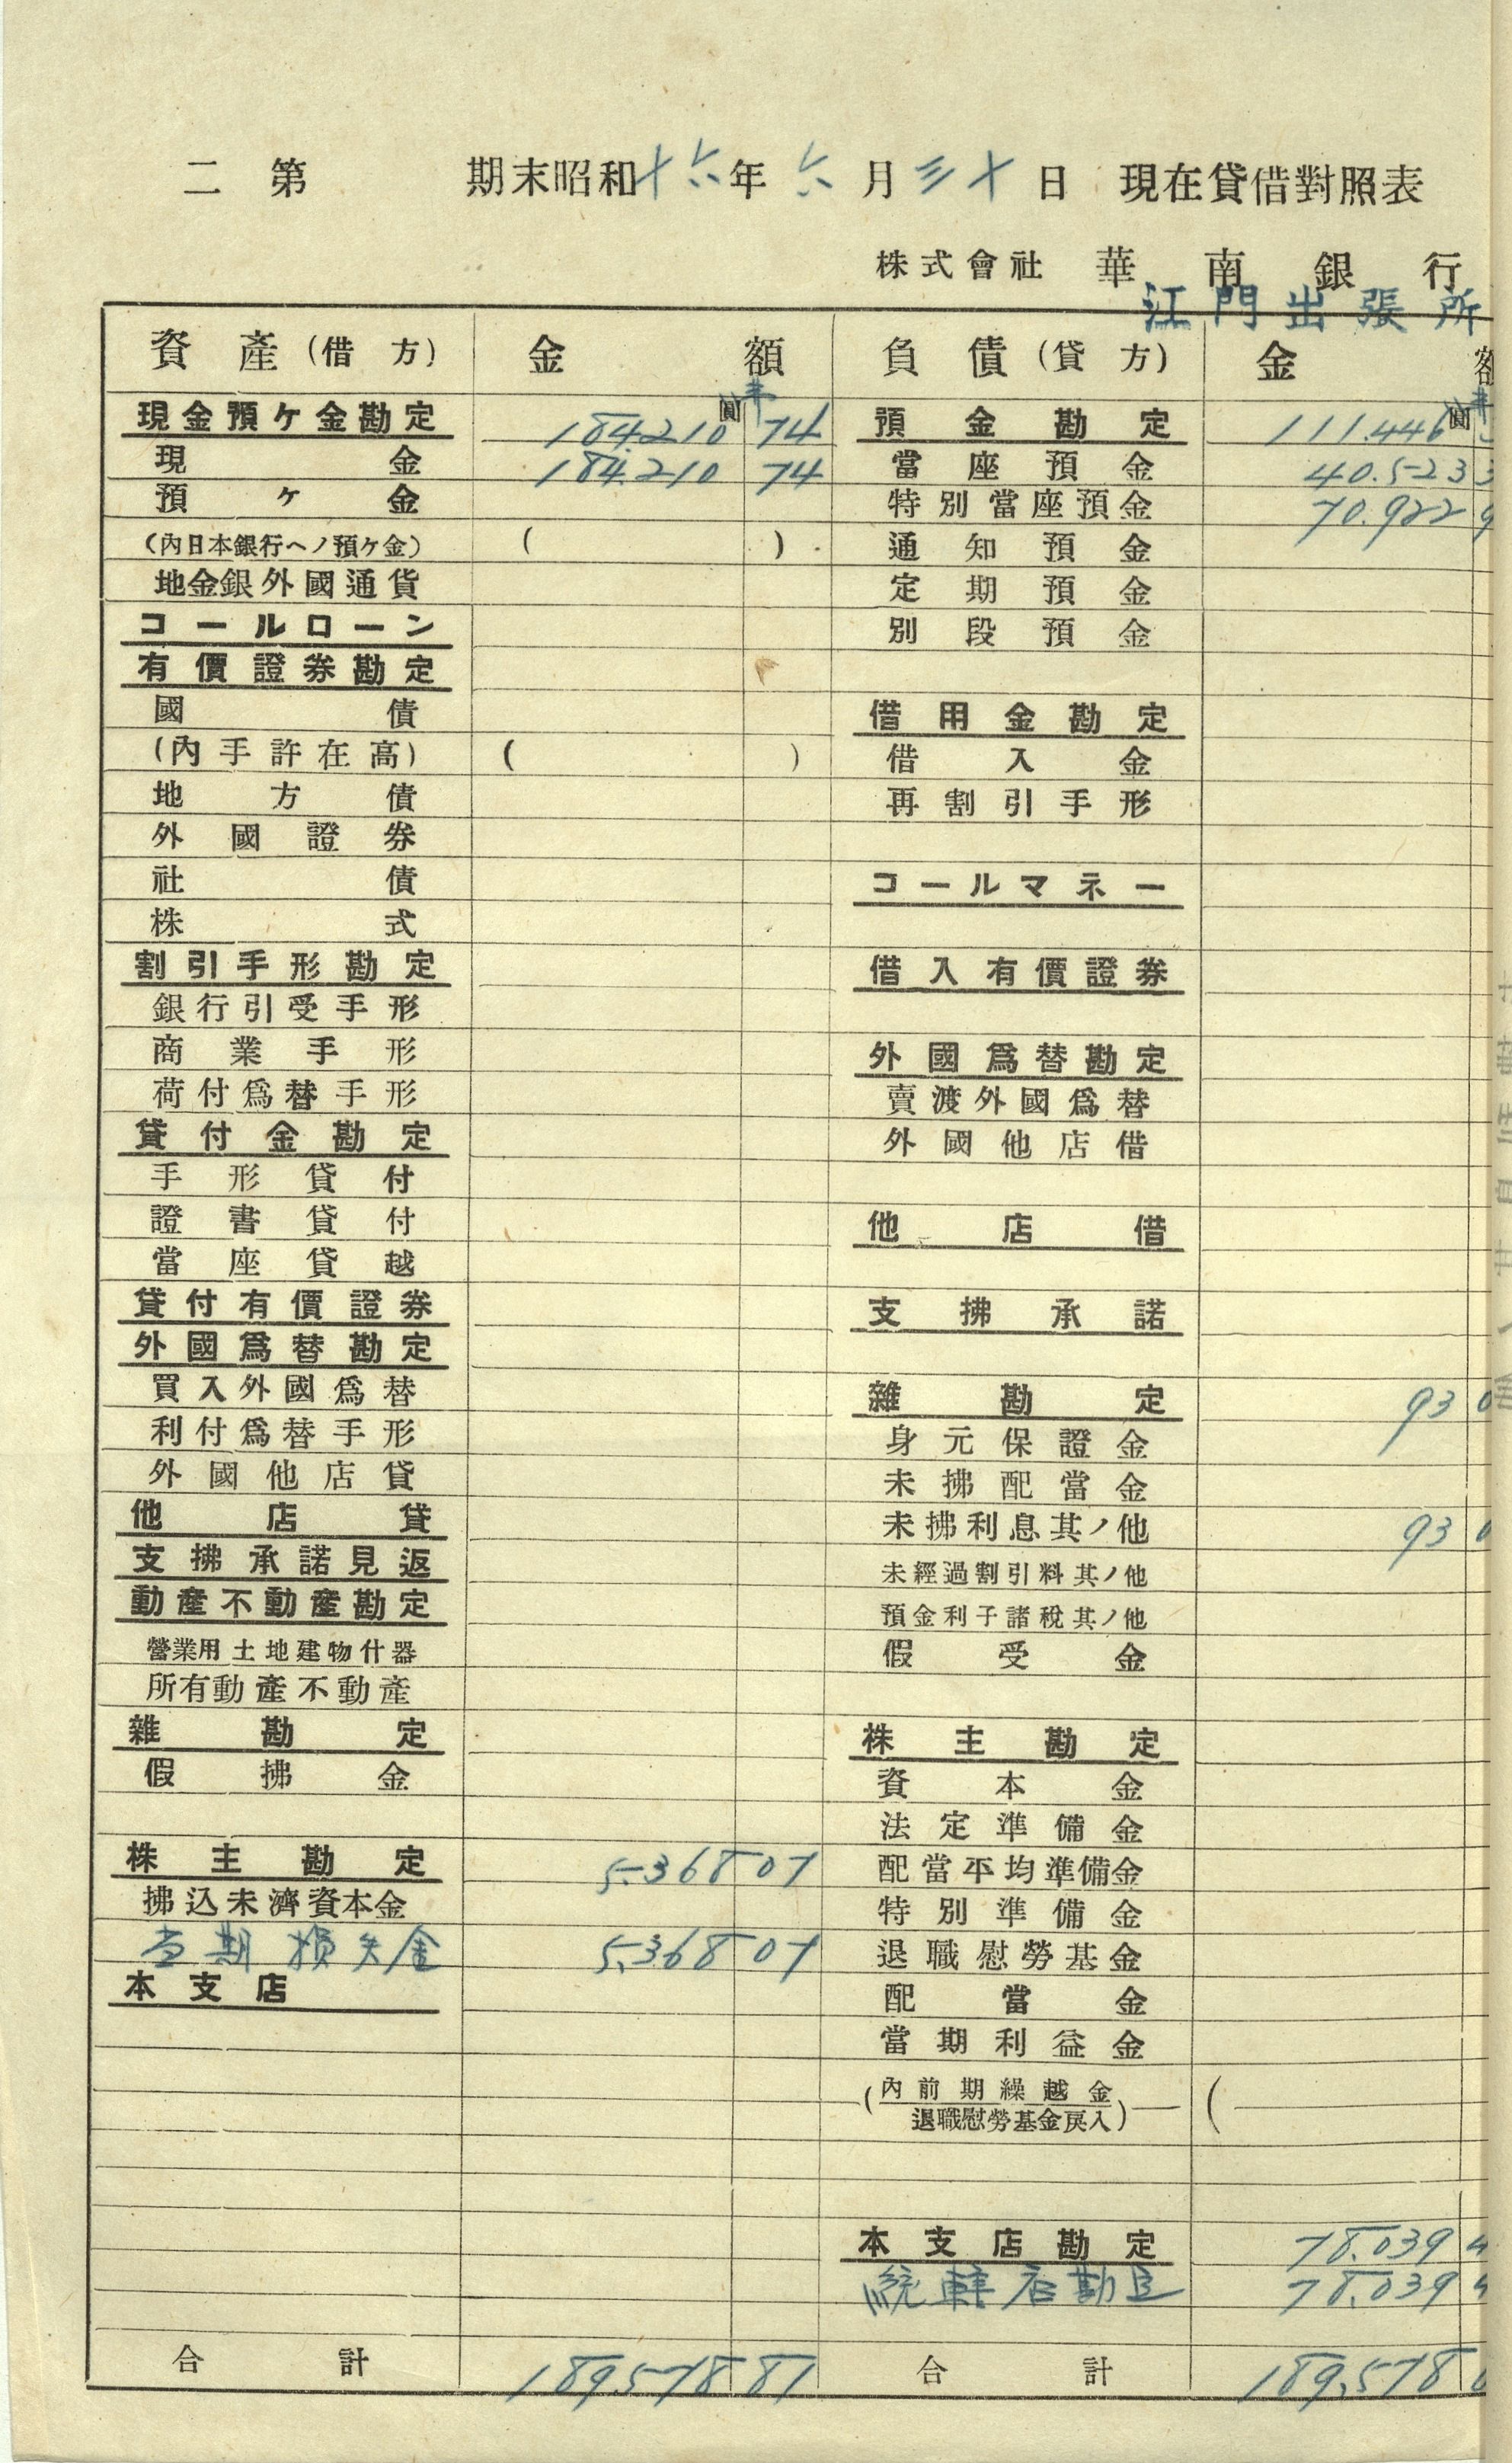 二 第 期末昭和十六年六月三十日 現在貸借對照表
株式會社 華南銀行
江門出張所
資產(借方) 金額 負債(貸方) 金額
現金預ケ金勘定 184.210圓 74 預金勘定 111.446圓
現金 184.210 74 當座預金 40.523 3
預ケ金 特別當座預金 70.922 9
(內日本銀行ヘノ預ケ金) ( ) 通知預金
地金銀外國通貨 定期預金
コールローン 別段預金
有價證券勘定
國債 借用金勘定
(內手許在高) ( ) 借入金
地方債 再割引手形
外國證券
社債 コールマネー
株式
割引手形勘定 借入有價證券
銀行引受手形
商業手形 外國爲替勘定
荷付爲替手形 賣渡外國爲替
貸付金勘定 外國他店借
手形貸付
證書貸付 他店借
當座貸越
貸付有價證券 支拂承諾
外國爲替勘定
買入外國爲替 雜勘定 93 0
利付爲替手形 身元保證金
外國他店貸 未拂配當金
他店貸 未拂利息其ノ他 93 0
支拂承諾見返 未經過割引料其ノ他
動產不動產勘定 預金利子諸稅其ノ他
營業用土地建物什器 假受金
所有動產不動產
雜勘定 株主勘定
假拂金 資本金
法定準備金
株主勘定 5.368 07 配當平均準備金
拂込未濟資本金 特別準備金
当期損失金 5.368 07 退職慰勞基金
本支店 配當金
當期利益金
(內前期繰越金 (
退職慰勞基金戾入)
本支店勘定 78.039 4
統轄店勘定 78.039 4
合計 189.578 81 合計 189.578